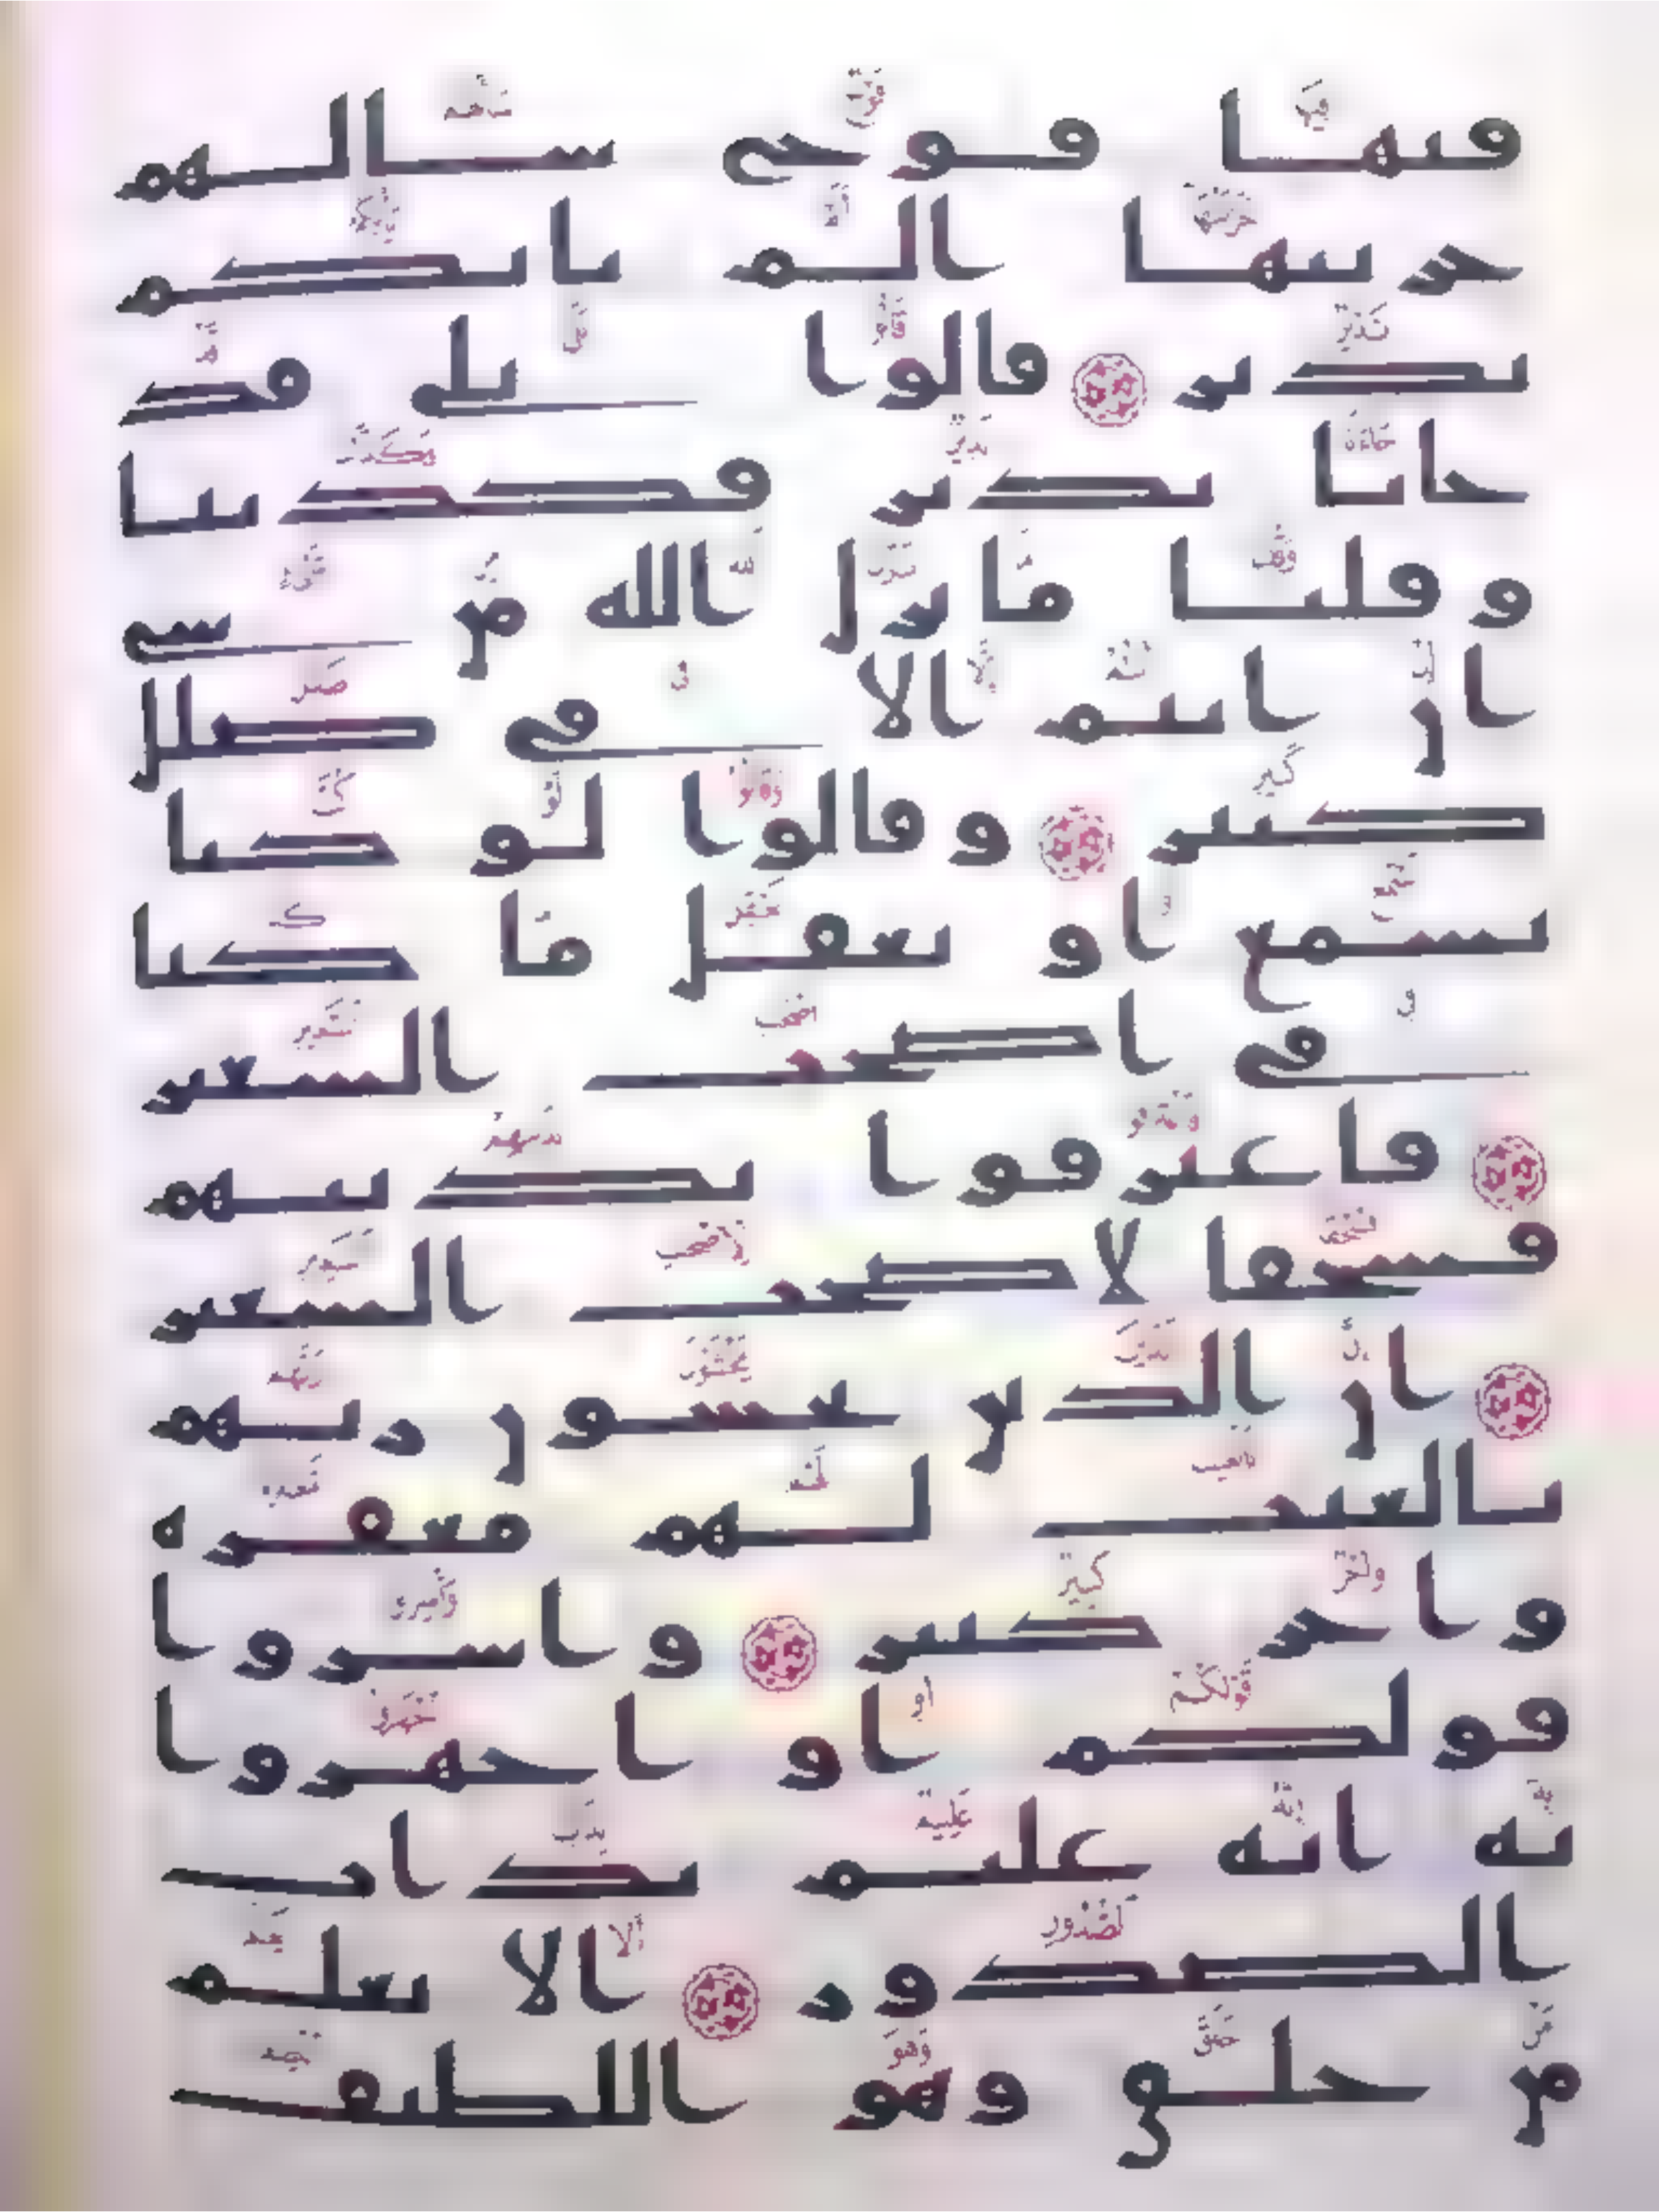 فيها فوج سالهم
خزنتها الم ياتكم
نذير قالوا بلى قد
جانا نذير فكذبنا
وقلنا ما نزل الله من شي
ان انتم الا في ضلل
كبير وقالوا لو كنا
نسمع او نعقل ما كنا
في اصحب السعير
فاعترفوا بذنبهم
فسحقا لاصحب السعير
ان الذين يخشون ربهم
بالغيب لهم مغفره
واجر كبير واسروا
قولكم او اجهروا
به انه عليم بذات
الصدور الا يعلم
من خلق وهو اللطيف